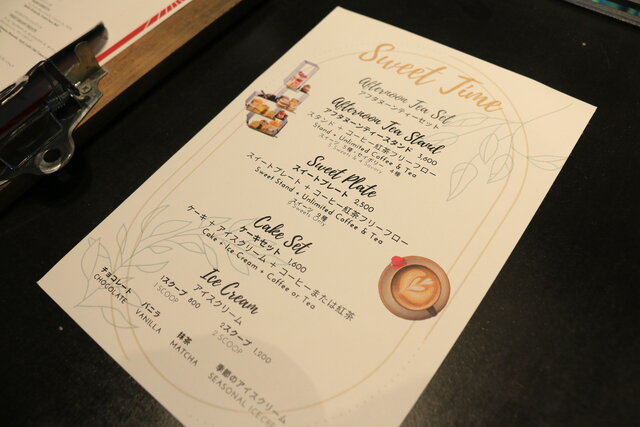 Sweet Time
Afternoon Tea Set
アフタヌーンティーセット
Afternoon Tea Stand
アフタヌーンティースタンド 3,600
スタンド + コーヒー紅茶フリーフロー
Stand + Unlimited Coffee & Tea
スイーツ 5種・セイボリー 4種
5 Sweets & 4 Savory
Sweet Plate
スイートプレート 2,500
スイートプレート + コーヒー紅茶フリーフロー
Sweet Stand + Unlimited Coffee & Tea
スイーツ 9種
Cake Set
ケーキセット 1,600
ケーキ + アイスクリーム + コーヒーまたは紅茶
Cake + Ice Cream + Coffee or Tea
Ice Cream
アイスクリーム
1スクープ 800 2スクープ 1,200
1 SCOOP 2 SCOOP
チョコレート バニラ 抹茶 季節のアイスクリーム
CHOCOLATE VANILLA MATCHA SEASONAL